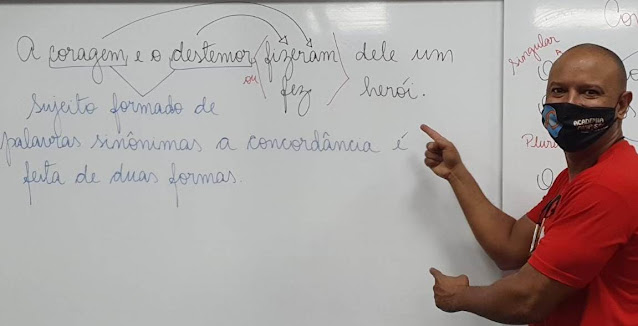 A coragem e o destemor (fizeram) dele um
ou
fez herói.
Sujeito formado de
palavras sinônimas a concordância é
feita de duas formas.
Singular
A
Plural
Co
ACADEMIA